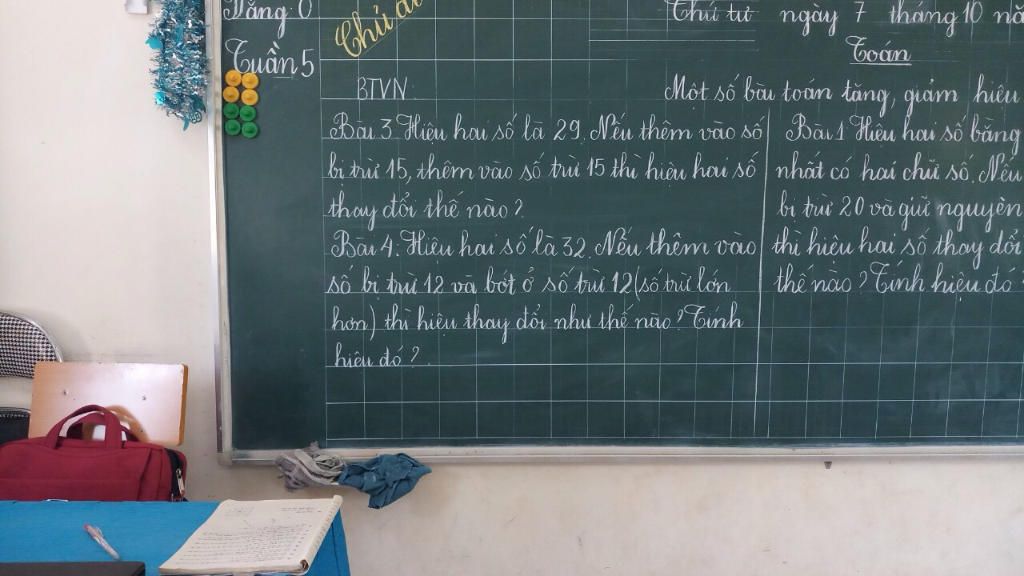 Vắng: 0
Tuần 5
Chủ đi
Thứ tư ngày 7 tháng 10 nă
Toán
BTVN
Bài 3. Hiệu hai số là 29. Nếu thêm vào số
bị trừ 15, thêm vào số trừ 15 thì hiệu hai số
thay đổi thế nào?
Bài 4. Hiệu hai số là 32. Nếu thêm vào
số bị trừ 12 và bớt ở số trừ 12 (số trừ lớn
hơn) thì hiệu thay đổi như thế nào? Tính
hiệu đó?
Một số bài toán tăng, giảm hiệu
Bài 1 Hiệu hai số bằng
nhất có hai chữ số. Nếu
bị trừ 20 và giữ nguyên
thì hiệu hai số thay đổi
thế nào? Tính hiệu đó